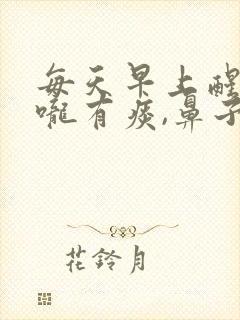 每天早上醒
嚨有痰,鼻子
花鈴月